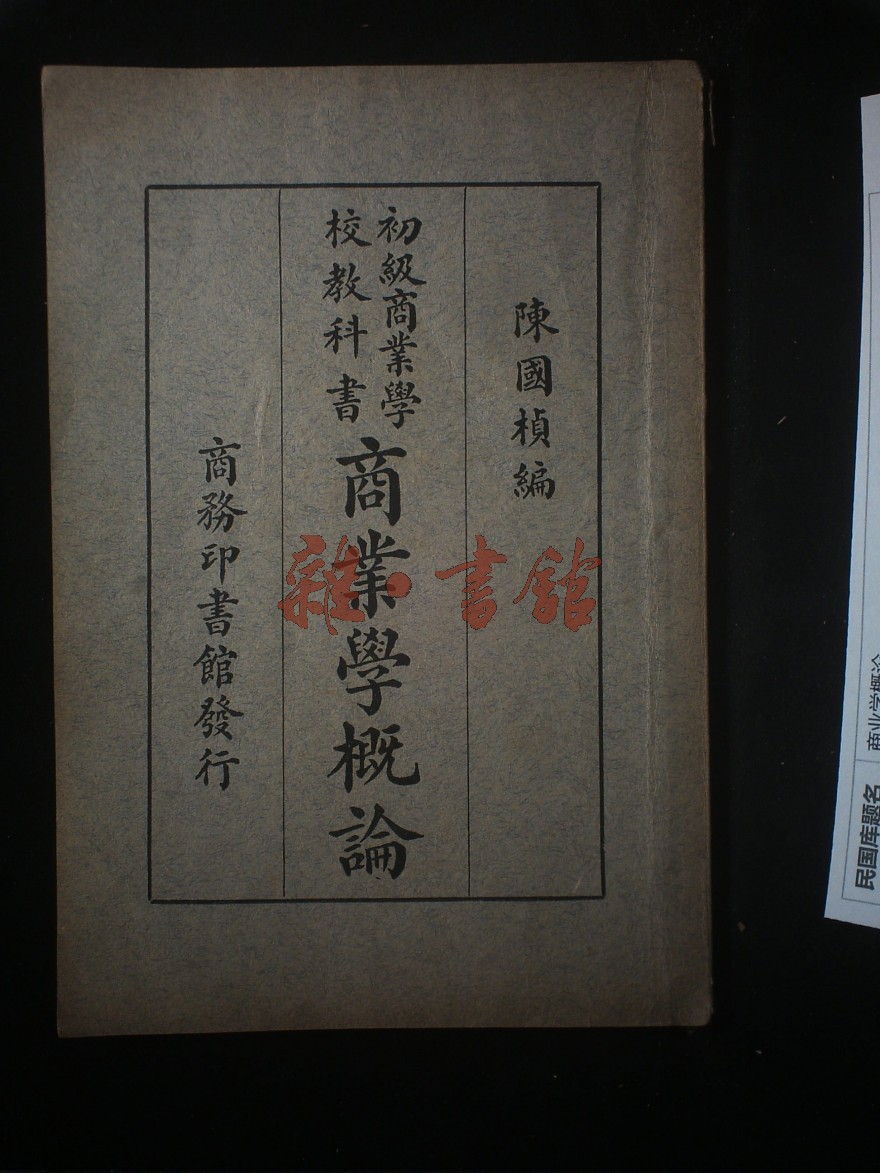 陳國楨編
初級商業學
校教科書
商業學概論
商務印書館發行
雜·書館
民国库题名
商业学概论